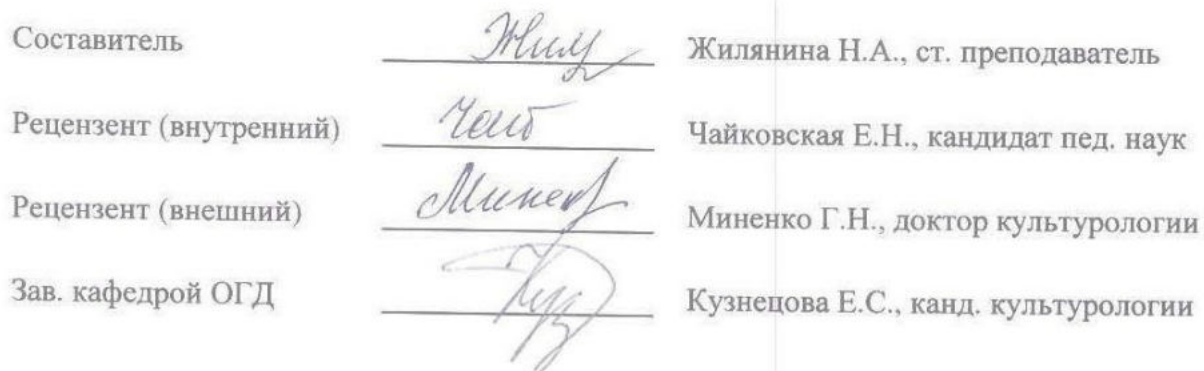 Составитель Жилянина Н.А., ст. преподаватель
Рецензент (внутренний) Чайковская Е.Н., кандидат пед. наук
Рецензент (внешний) Миненко Г.Н., доктор культурологии
Зав. кафедрой ОГД Кузнецова Е.С., канд. культурологии